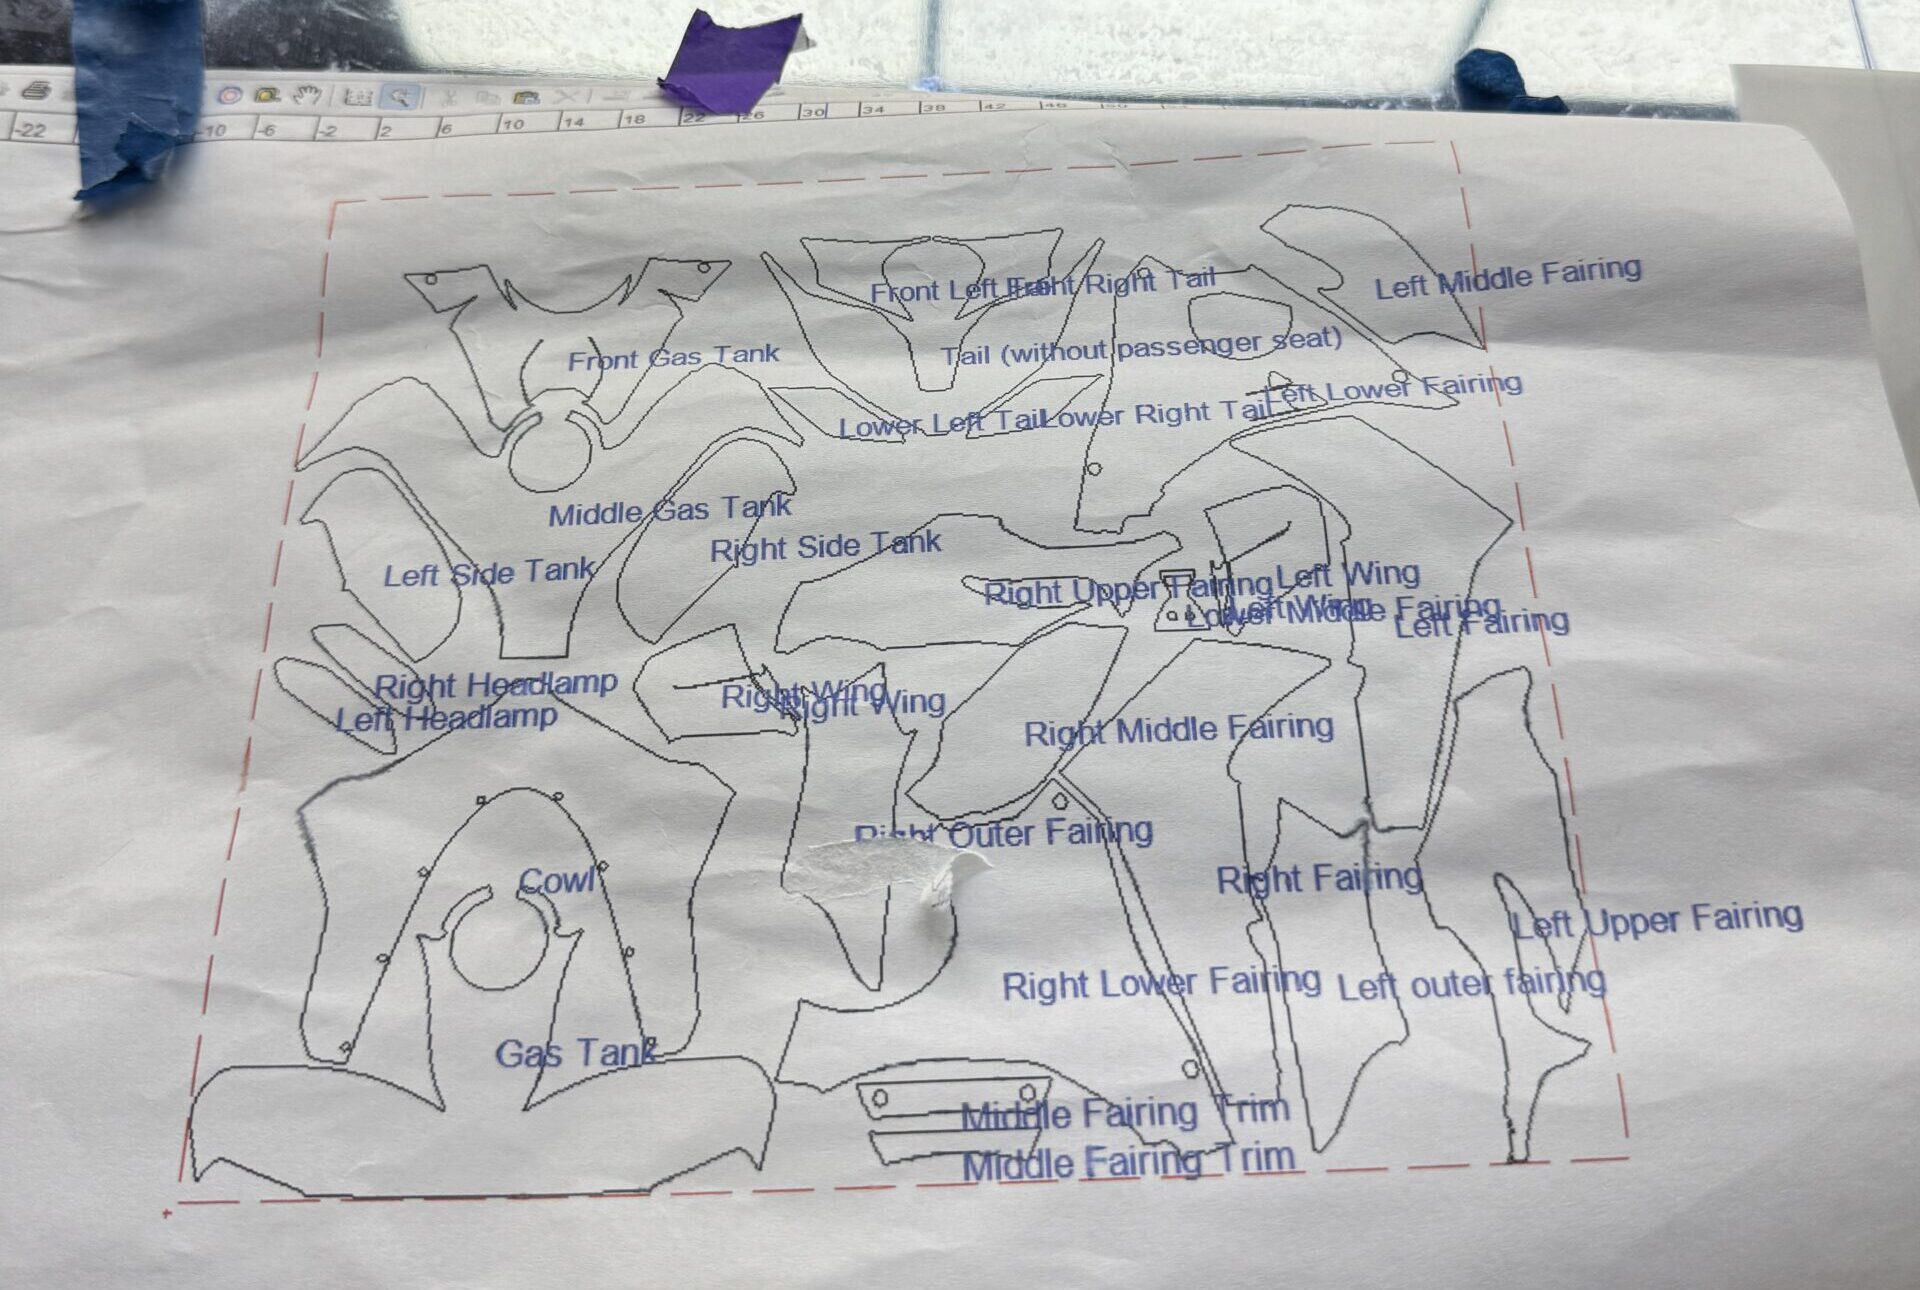 -22 -10 -6 -2 2 6 10 14 18 22 26 30 34 38 42 46
Front Left Tail Front Right Tail
Left Middle Fairing
Front Gas Tank
Tail (without passenger seat)
Left Lower Fairing
Lower Left Tail Lower Right Tail
Middle Gas Tank
Right Side Tank
Left Side Tank
Right Upper Fairing Left Wing
Lower Middle Fairing
Left Wing
Left Fairing
Right Headlamp
Right Wing
Right Wing
Left Headlamp
Right Middle Fairing
Right Outer Fairing
Cowl
Right Fairing
Left Upper Fairing
Right Lower Fairing Left outer fairing
Gas Tank
Middle Fairing Trim
Middle Fairing Trim